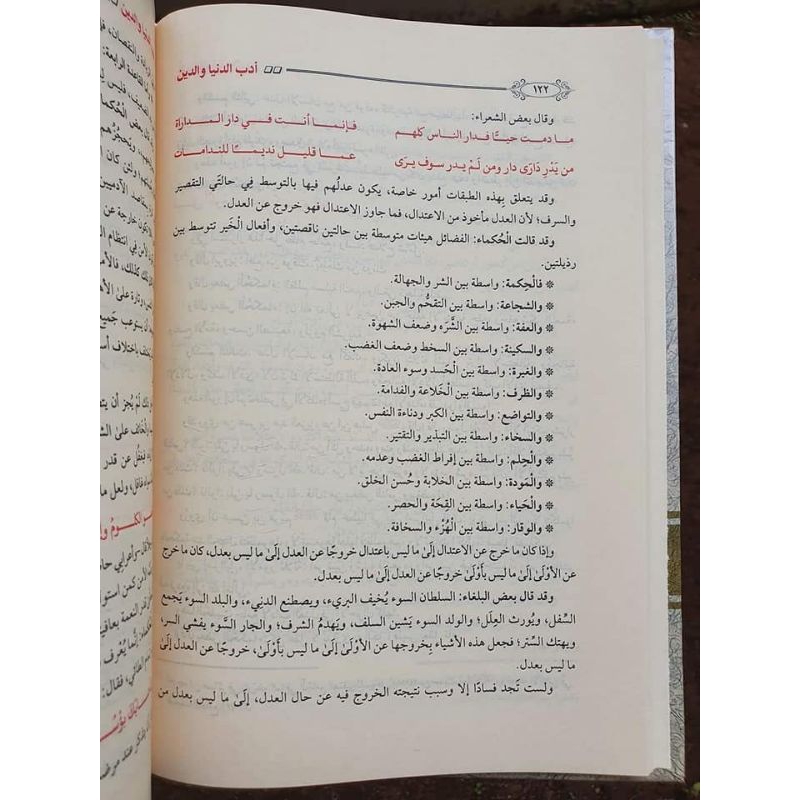 ١٢٢ أدب الدنيا والدين
وقال بعض الشعراء:
ما دمت حيًّا فدار الناس كلهم فإنما أنت في دار المداراة
من يَدْرِ دَارَى دار ومن لَمْ يدر سوف يرى عما قليل نديمًا للندامات
وقد يتعلق بهذه الطبقات أمور خاصة، يكون عدلُهم فيها بالتوسط في حالتَي التقصير
والسرف؛ لأن العدل مأخوذ من الاعتدال، فما جاوز الاعتدال فهو خروج عن العدل.
وقد قالت الْحُكماء: الفضائل هيئات متوسطة بين حالتين ناقصتين، وأفعال الْخَير تتوسط بين
رذيلتين.
* فالْحِكمة: واسطة بين الشر والجهالة.
* والشجاعة: واسطة بين التقحُّم والجبن.
* والعفة: واسطة بين الشَّرَه وضعف الشهوة.
* والسكينة: واسطة بين السخط وضعف الغضب.
* والغيرة: واسطة بين الْحَسد وسوء العادة.
* والظرف: واسطة بين الْخَلاعة والفدامة.
* والتواضع: واسطة بين الكبر ودناءة النفس.
* والسخاء: واسطة بين التبذير والتقتير.
* والْحِلم: واسطة بين إفراط الغضب وعدمه.
* والْمَودة: واسطة بين الخلابة وحُسن الخلق.
* والْحَياء: واسطة بين القِحَة والحصر.
* والوقار: واسطة بين الْهُزْء والسخافة.
وإذا كان ما خرج عن الاعتدال إلَىٰ ما ليس باعتدال خروجًا عن العدل إلَىٰ ما ليس بعدل، كان ما خرج
عن الأوْلَىٰ إلَىٰ ما ليس بأَوْلَىٰ خروجًا عن العدل إلَىٰ ما ليس بعدل.
وقد قال بعض البلغاء: السلطان السوء يُخيف البريء، ويصطنع الدنيء، والبلد السوء يَجمع
السِّفل، ويُورث العِلَل؛ والولد السوء يَشين السلف، ويَهدِمُ الشرف؛ والجار السُّوء يفشي السر،
ويهتك السِّتر؛ فجعل هذه الأشياء بِخروجها عن الأَوْلَىٰ إلَىٰ ما ليس بأَوْلَىٰ، خروجًا عن العدل إلَىٰ
ما ليس بعدل.
ولست تَجد فسادًا إلا وسبب نتيجته الخروج فيه عن حال العدل، إلَىٰ ما ليس بعدل من